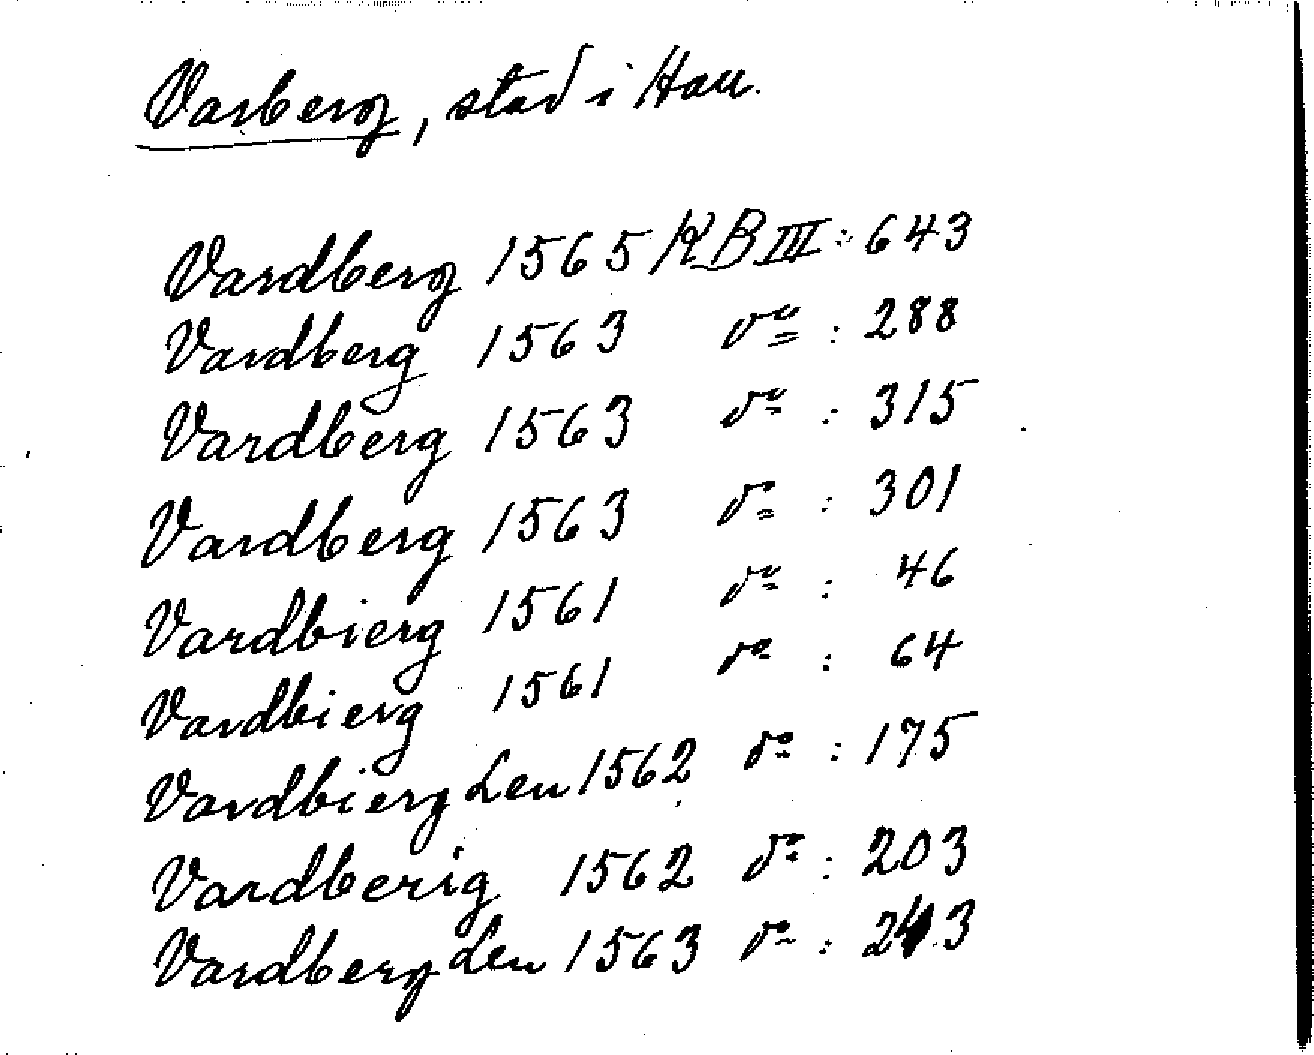 Varberg, stad i Hall.
Vardberg 1565 KB III: 643
Vardberg 1563 do : 288
Vardberg 1563 do : 315
Vardberg 1563 do : 301
Vardbierg 1561 do : 46
Vardbierg 1561 do : 64
Vardbierg Len 1562 do : 175
Vardberig 1562 do : 203
Vardberg Len 1563 do : 243